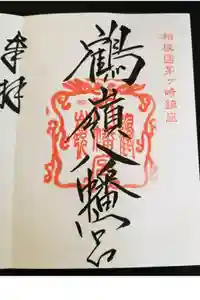 相模國茅ヶ崎鎮座
鶴嶺八幡宮
奉拝